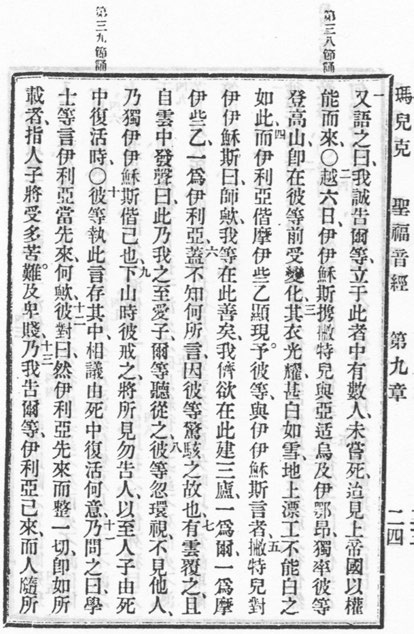 瑪兒克 聖福音經 第九章 二四
第三八節誦
第三九節誦
一又語之曰我誠告爾等立于此者中有數人未嘗死迨見上帝國以權
能而來〇二越六日伊伊穌斯携撇特兒與亞适烏及伊鄂昂獨率彼等
登高山卽在彼等前受變化三其衣光耀甚白如雪地上漂工不能白之
四如此而伊利亞偕摩伊些乙顯現予彼等與伊伊穌斯言者五撇特兒對
伊伊穌斯曰師歟我等在此善矣我儕欲在此建三廬一爲爾一爲摩
伊些乙一爲伊利亞六蓋不知何所言因彼等驚駭之故也七有雲覆之且
自雲中發聲曰此乃我之至愛子爾等聽從之八彼等忽環視不見他人
乃獨伊伊穌斯偕己也九下山時彼戒之將所見勿告人以至人子由死
中復活時〇十彼等執此言存其中相議由死中復活何意十一乃問之曰學
士等言伊利亞當先來何歟十二彼對曰然伊利亞先來而整一切卽如所
載者指人子將受多苦難及卑賤十三乃我吿爾等伊利亞已來而人隨所